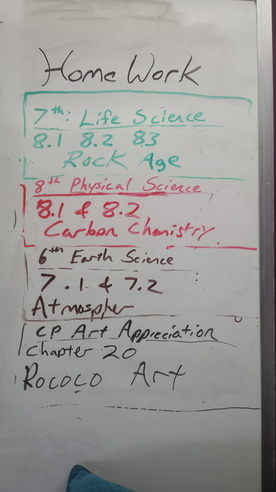 Home Work
7th: Life Science
8.1 8.2 8.3
Rock Age
8th Physical Science
8.1 & 8.2
Carbon Chemistry
6th Earth Science
7.1 & 7.2
Atmospher
CP Art Appreciation
Chapter 20
Rococo Art